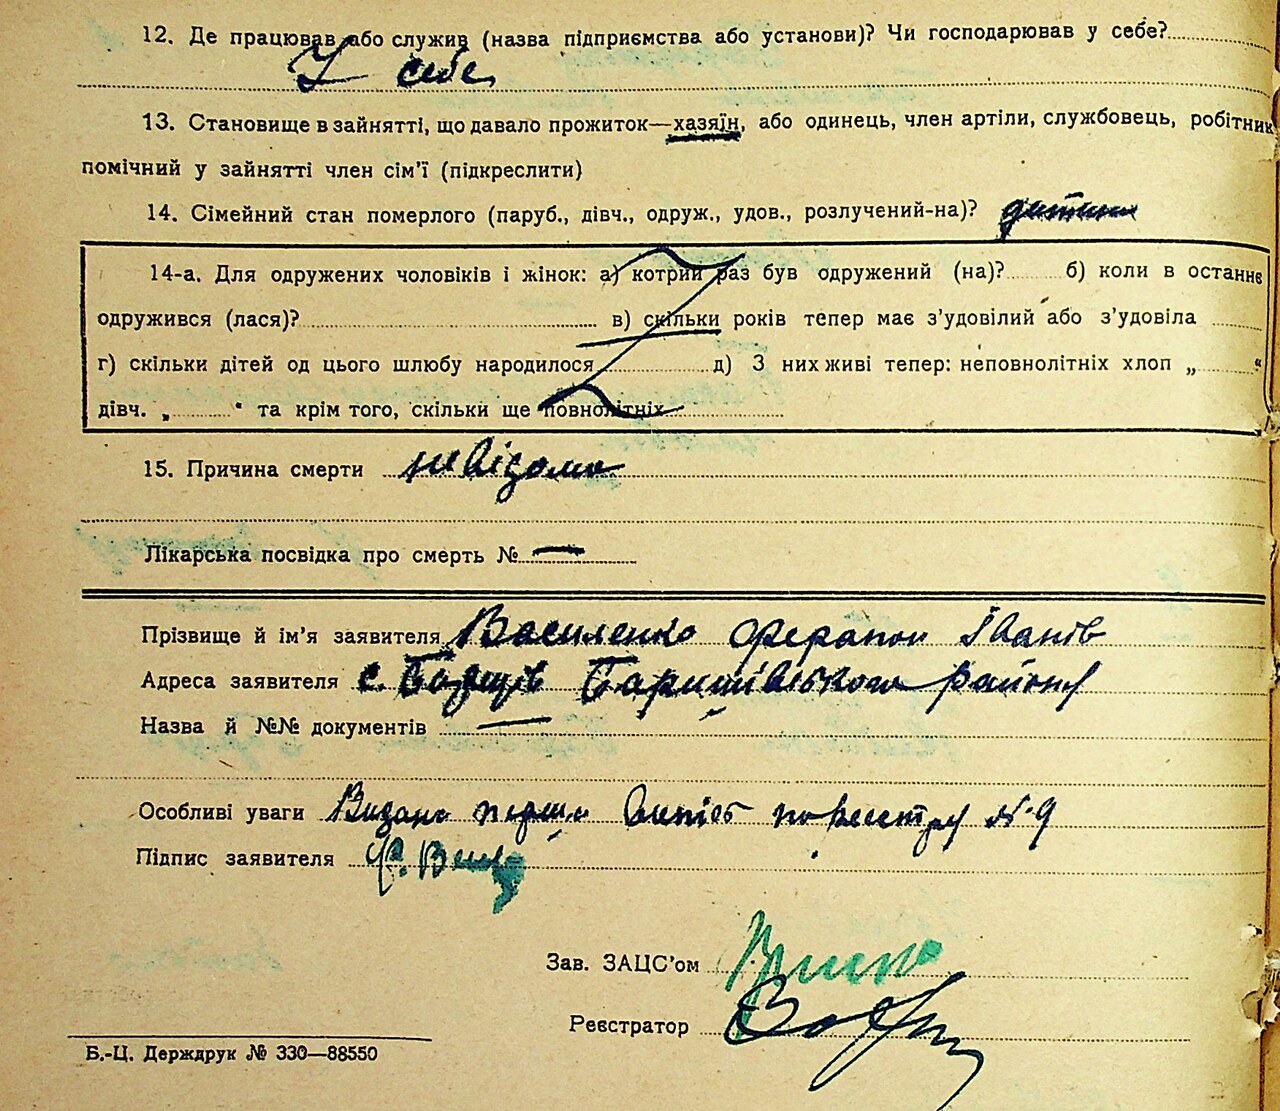 12. Де працював або служив (назва підприємства або установи)? Чи господарював у себе?
У себе
13. Становище в зайнятті, що давало прожиток—хазяїн, або одинець, член артіли, службовець, робітник
помічний у зайнятті член сім’ї (підкреслити)
14. Сімейний стан померлого (паруб., дівч., одруж., удов., розлучений-на)? дитина
14-а. Для одружених чоловіків і жінок: а) котрий раз був одружений (на)? б) коли в останнє
одружився (лася)? в) скільки років тепер має з’удовілий або з’удовіла
г) скільки дітей од цього шлюбу народилося д) З них живі тепер: неповнолітніх хлоп „ “
дівч. „ “ та крім того, скільки ще повнолітніх
15. Причина смерти невідома
Лікарська посвідка про смерть № —
Прізвище й ім’я заявителя Василенко Ферапон Іванів
Адреса заявителя с. Баришівського району
Назва й №№ документів —
Особливі уваги Видано перший витяг по реєстру № 9
Підпис заявителя
Зав. ЗАЦС’ом
Реєстратор
Б.-Ц. Держдрук № 330—88550